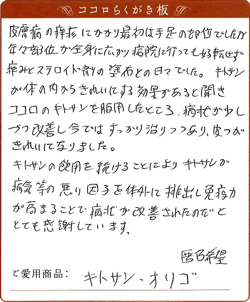 ココロらくがき板
皮膚病の痒疹にかかり最初は手足の一部位でしたが
年々部位が全身に広がり病院に行っても好転せず
痒みとステロイド剤の塗布との日々でした。キトサン
が体の内からきれいにする効果があると聞き
ココロのキトサンを服用したところ、病状が少し
づつ改善し今ではすっかり治りつつあり、皮フが
きれいになりました。
キトサンの飲用を続けることによりキトサンが
病気等の悪い因子を体外に排出し免疫力
が高まることで病状が改善されたのだと
とても感謝しています。
匿名希望
ご愛用商品：キトサン・オリゴ